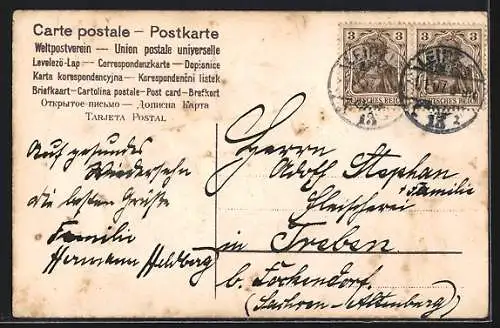 Carte postale – Postkarte
Weltpostverein — Union postale universelle
Levelező-Lap — Correspondenzkarte — Dopisnice
Karta korespondencyjna — Korespondenční listek
Briefkaart - Cartolina postale - Post card - Brefkort
Открытое письмо — Дописна Карта
TARJETA POSTAL
3 3 3 3
DEUTSCHES REICH DEUTSCHES REICH
LEIPZIG
13
LEIPZIG
13
Auf gesundes
Wiedersehn
die besten Grüße
Familie
Hermann Heldberg
Herrn
Adolf Stephan
+ Familie
Fleischerei
in Treben
b. Fockendorf.
(Sachsen-Altenberg)